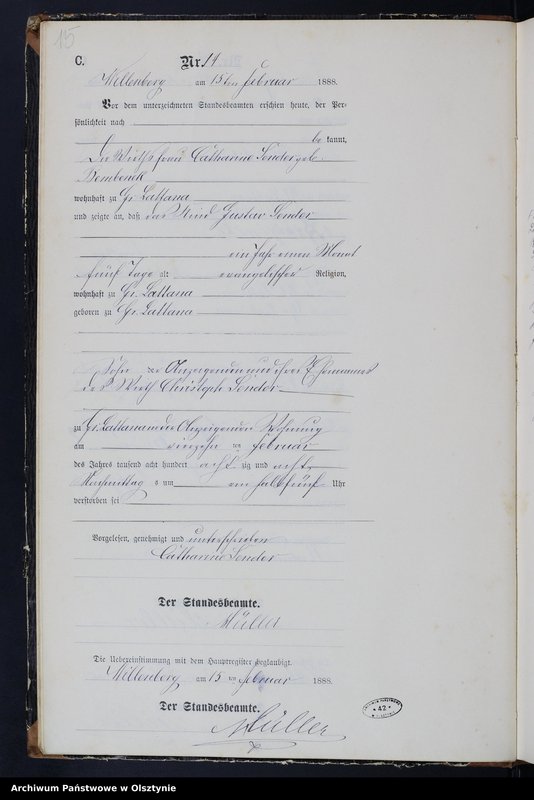 15
C.
Nr. 14
Willenberg am 15ten Februar 1888.
Vor dem unterzeichneten Standesbeamten erschien heute, der Per-
sönlichkeit nach
be kannt,
die Wirthsfrau Catharine Sender geb.
wohnhaft zu Gr. Lattana
und zeigte an, daß das Kind Gustav Sender
ein Jahr einen Monat
fünf Tage alt evangelischer Religion,
wohnhaft zu Gr. Lattana
geboren zu Gr. Lattana
Sohn der Anzeigenden und ihres Ehemannes
des Wirth Christoph Sender
zu Gr. Lattana in der Anzeigenden Wohnung
am vierzehn ten Februar
des Jahrs tausend acht hundert acht zig und acht
Nachmittag s um ein halb fünf Uhr
verstorben sei
Vorgelesen, genehmigt und unterschrieben
Catharine Sender
Der Standesbeamte.
Müller
Die Uebereinstimmung mit dem Hauptregister beglaubigt.
Willenberg am 15 ten Februar 1888.
Der Standesbeamte.
Müller
* 42 *
Archiwum Państwowe w Olsztynie